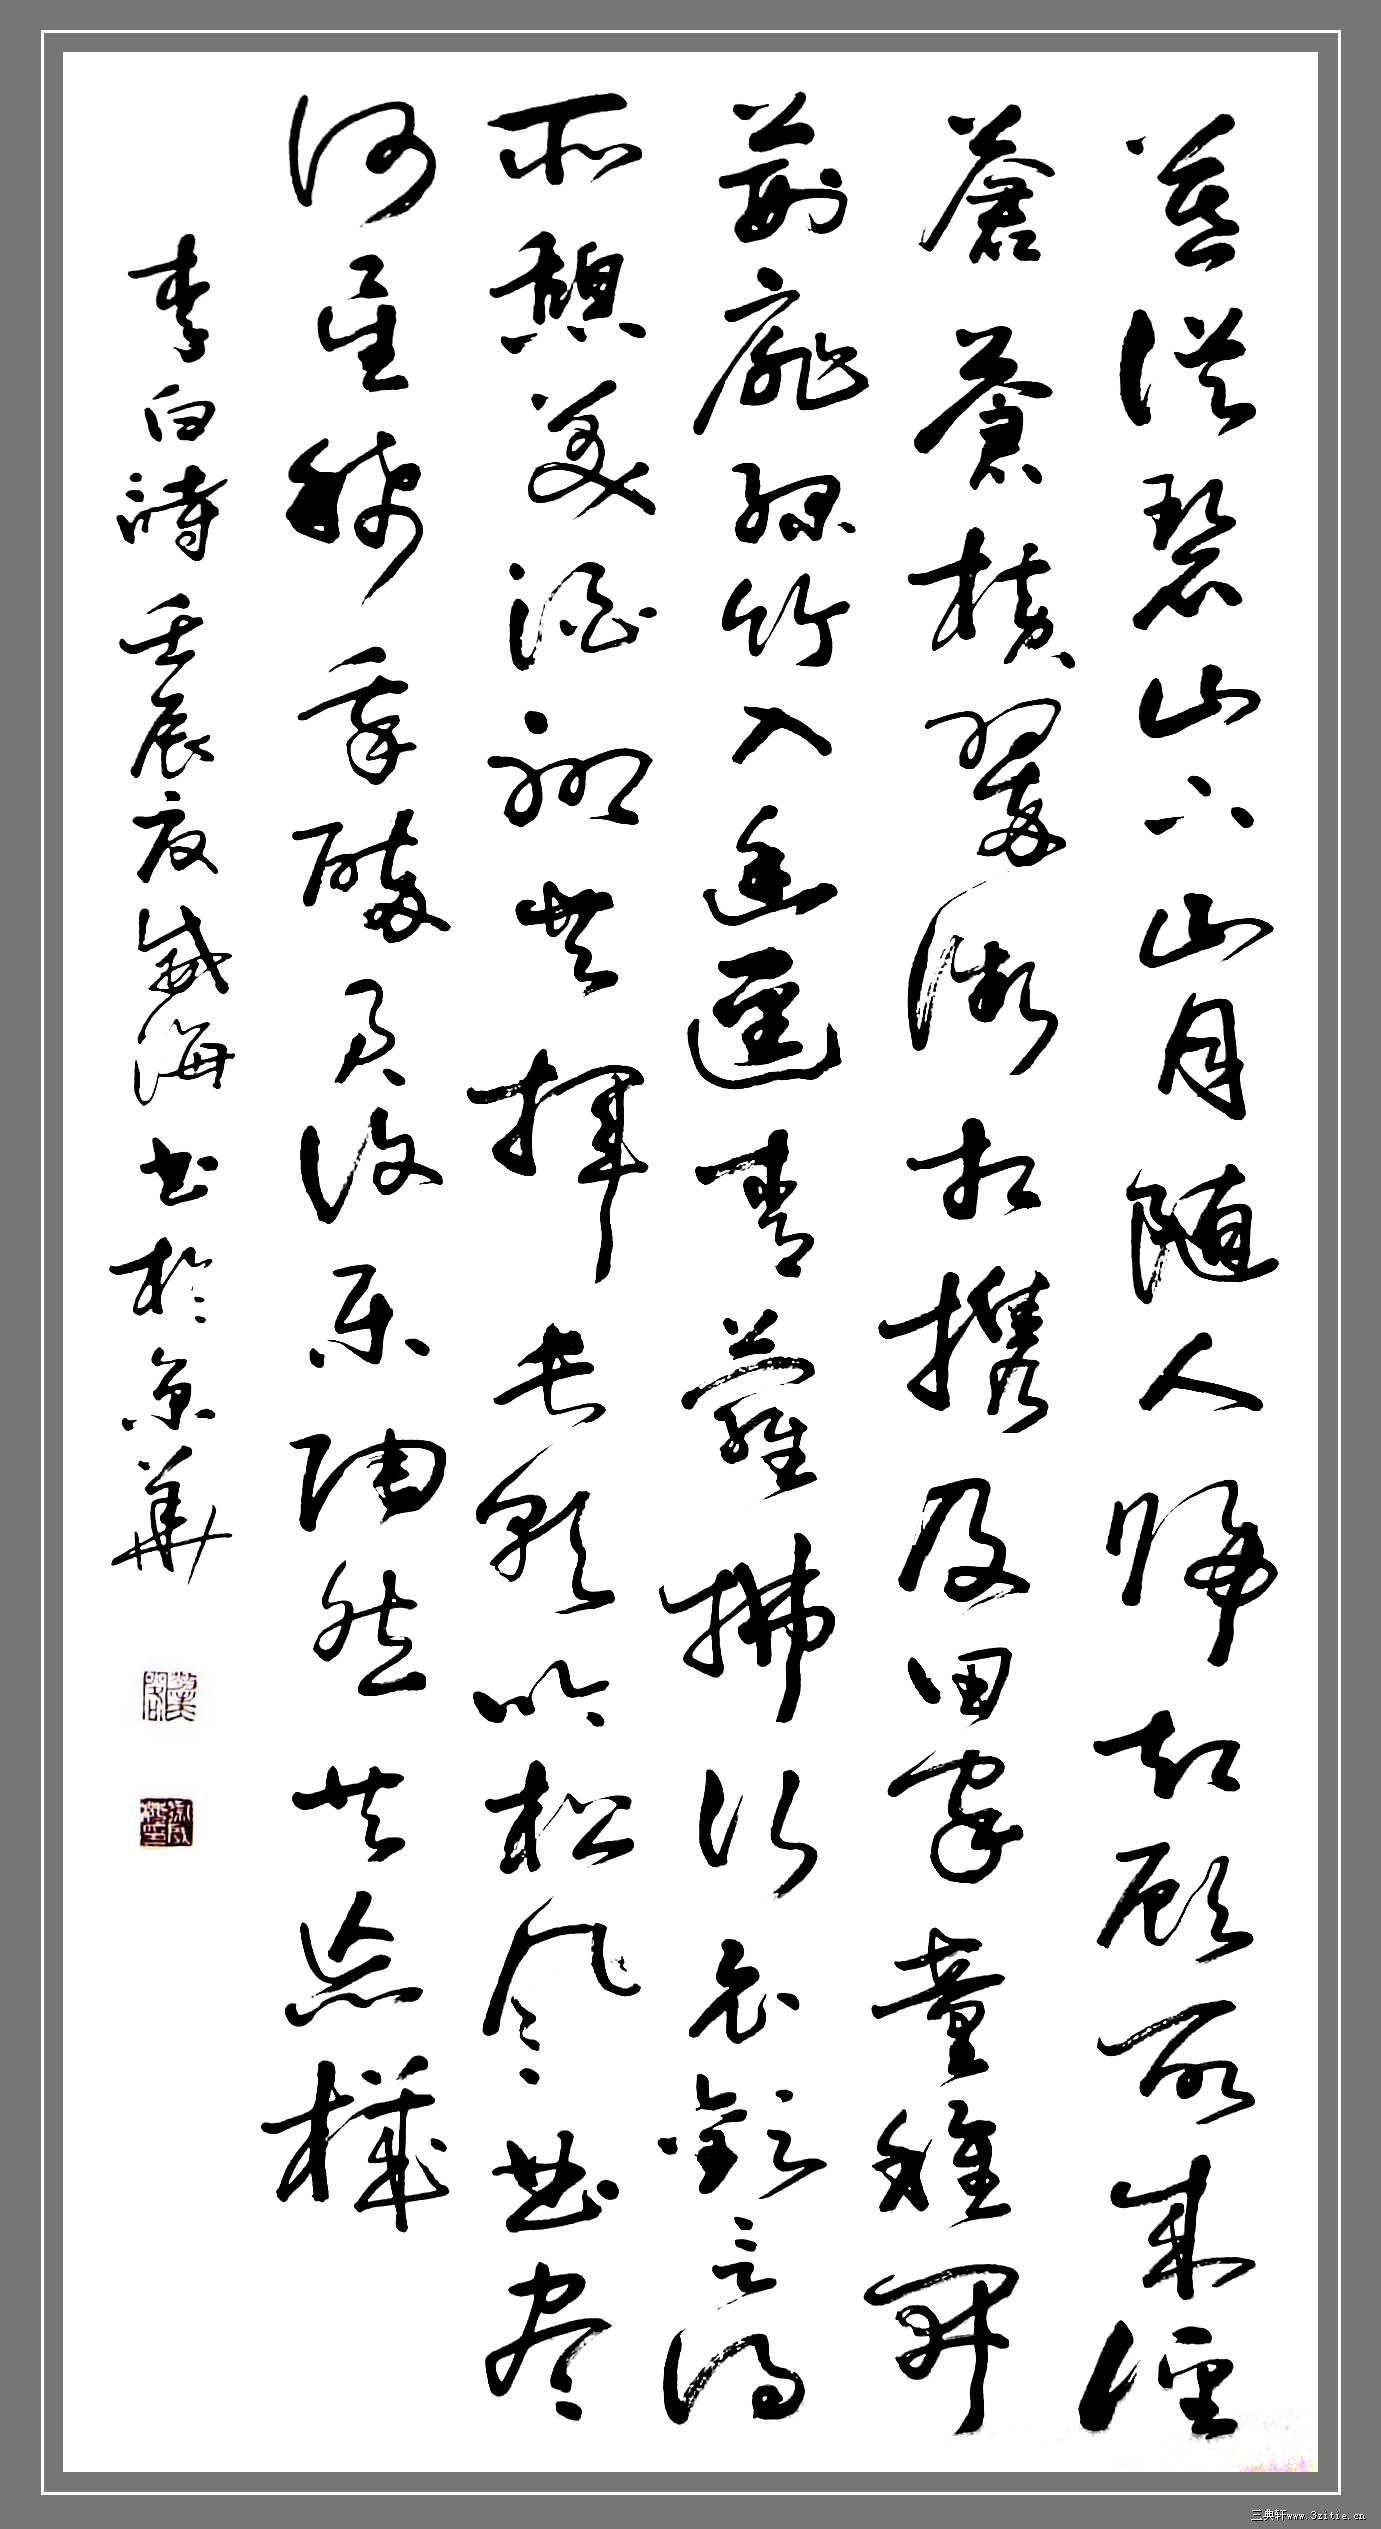 暮從碧山下山月随人歸却顧所來徑
蒼蒼橫翠微相携及田家童稚開
荊扉綠竹入幽逕青蘿拂行衣歡言得
所憩美酒聊共揮長歌吟松風曲尽
河星稀我醉君復樂陶然共忘機
李白詩壬辰夏威海书於京華
三典轩www.3zitie.cn